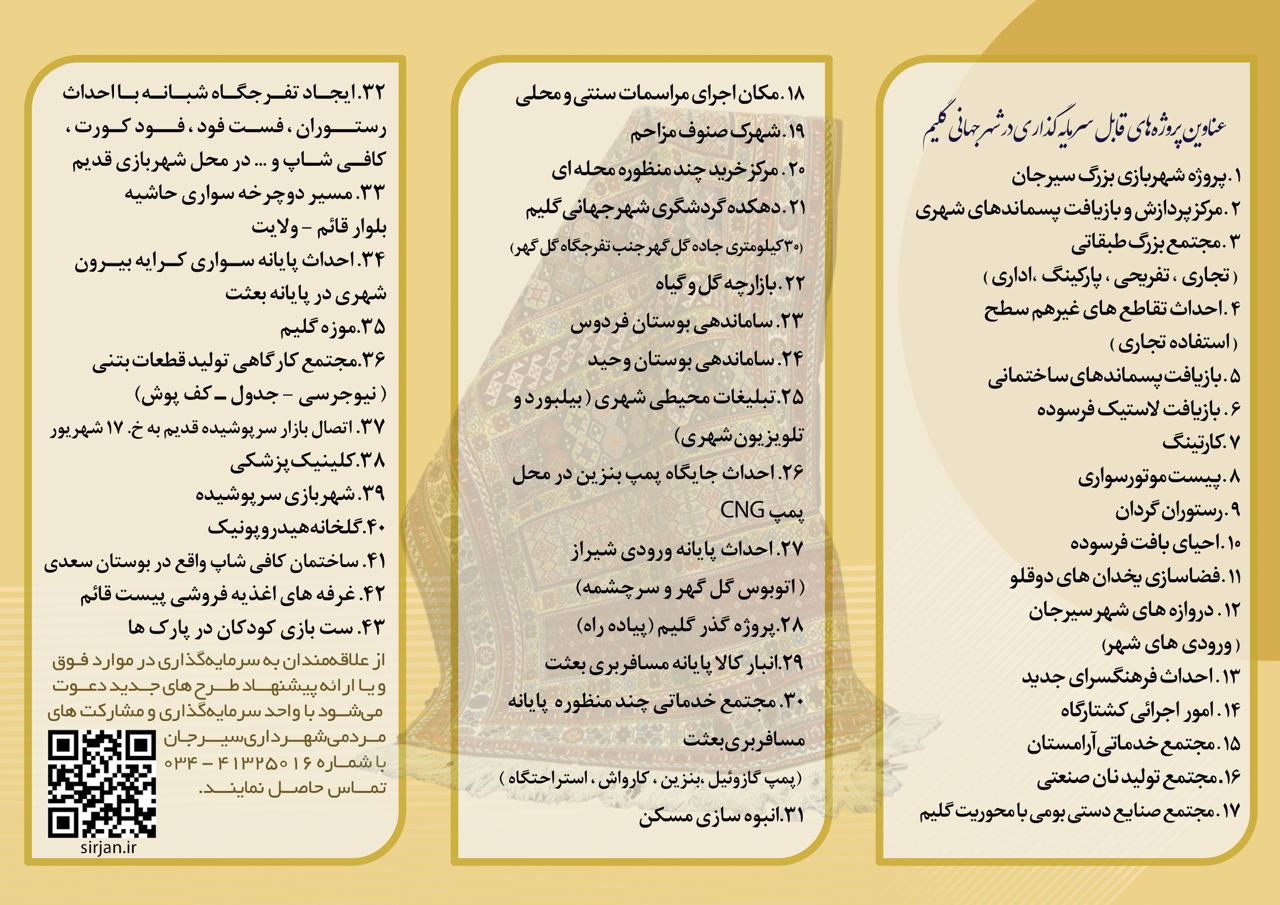 عناوین پروژه‌های قابل سرمایه گذاری در شهر جهانی گلیم
۱.پروژه شهربازی بزرگ سیرجان
۲.مرکز پردازش و بازیافت پسماندهای شهری
۳.مجتمع بزرگ طبقاتی
( تجاری ، تفریحی ، پارکینگ ،اداری )
۴.احداث تقاطع های غیرهم سطح
( استفاده تجاری )
۵.بازیافت پسماندهای ساختمانی
۶.بازیافت لاستیک فرسوده
۷.کارتینگ
۸.پیست موتورسواری
۹.رستوران گردان
۱۰.احیای بافت فرسوده
۱۱.فضاسازی یخدان های دوقلو
۱۲.دروازه های شهر سیرجان
( ورودی های شهر)
۱۳.احداث فرهنگسرای جدید
۱۴.امور اجرائی کشتارگاه
۱۵.مجتمع خدماتی آرامستان
۱۶.مجتمع تولید نان صنعتی
۱۷.مجتمع صنایع دستی بومی با محوریت گلیم
۱۸.مکان اجرای مراسمات سنتی و محلی
۱۹.شهرک صنوف مزاحم
۲۰.مرکز خرید چند منظوره محله ای
۲۱.دهکده گردشگری شهر جهانی گلیم
(۳۰کیلومتری جاده گل گهر جنب تفرجگاه گل گهر)
۲۲.بازارچه گل و گیاه
۲۳.ساماندهی بوستان فردوس
۲۴.ساماندهی بوستان وحید
۲۵.تبلیغات محیطی شهری ( بیلبورد و
تلویزیون شهری)
۲۶.احداث جایگاه پمپ بنزین در محل
پمپ CNG
۲۷.احداث پایانه ورودی شیراز
( اتوبوس گل گهر و سرچشمه)
۲۸.پروژه گذر گلیم (پیاده راه)
۲۹.انبار کالا پایانه مسافربری بعثت
۳۰.مجتمع خدماتی چند منظوره پایانه
مسافربری بعثت
(پمپ گازوئیل ،بنزین ، کارواش ، استراحتگاه )
۳۱.انبوه سازی مسکن
۳۲.ایجـاد تفـرجگـاه شبـانـه بـا احداث
رستـــوران ، فسـت فود ، فــود کـورت ،
کافـی شـاپ و ... در محل شهربازی قدیم
۳۳. مسیر دوچرخه سواری حاشیه
بلوار قائم - ولایت
۳۴. احداث پایانه سـواری کـرایه بیـرون
شهری در پایانه بعثت
۳۵.موزه گلیم
۳۶.مجتمع کارگاهی تولید قطعات بتنی
( نیوجرسی - جدول ـ کف پوش)
۳۷. اتصال بازار سرپوشیده قدیم به خ. ۱۷ شهریور
۳۸.کلینیک پزشکی
۳۹.شهربازی سرپوشیده
۴۰.گلخانه هیدروپونیک
۴۱. ساختمان کافی شاپ واقع در بوستان سعدی
۴۲. غرفه های اغذیه فروشی پیست قائم
۴۳. ست بازی کودکان در پارک ها
از علاقه‌مندان به سرمایه‌گذاری در موارد فـوق
و یـا ارائه پیشنهـاد طـرح های جـدید دعـوت
می‌شـود با واحد سرمایه‌گذاری و مشارکت های
مـردمی‌شهـرداری‌سیـرجان
با شمـاره ۴۱۳۲۵۰۱۶ - ۰۳۴
تمـاس حاصـل نماینـد.
sirjan.ir